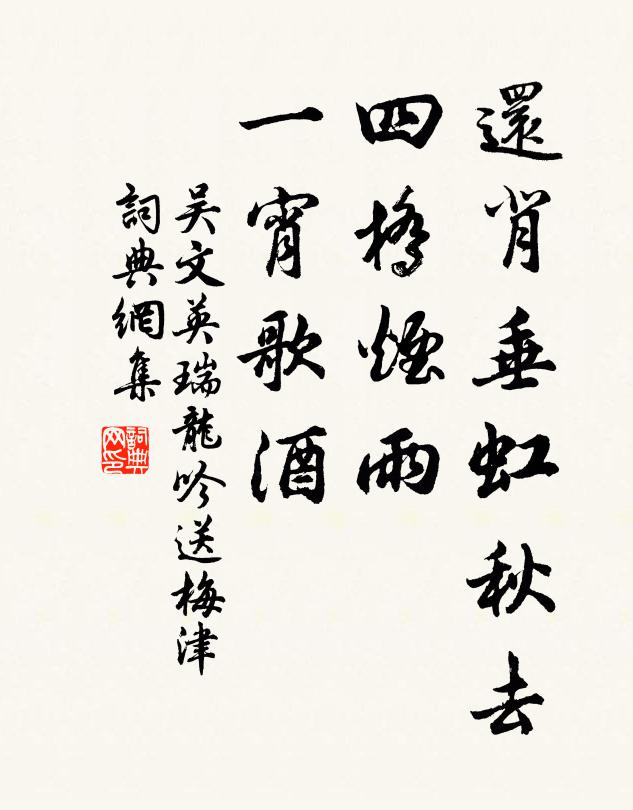 還背垂虹秋去
四橋煙雨
一宵歌酒
吴文英瑞龍吟送梅津
詞典網集
詞典网印